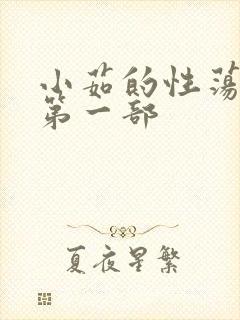 小茹的性荡
第一部
夏夜星繁